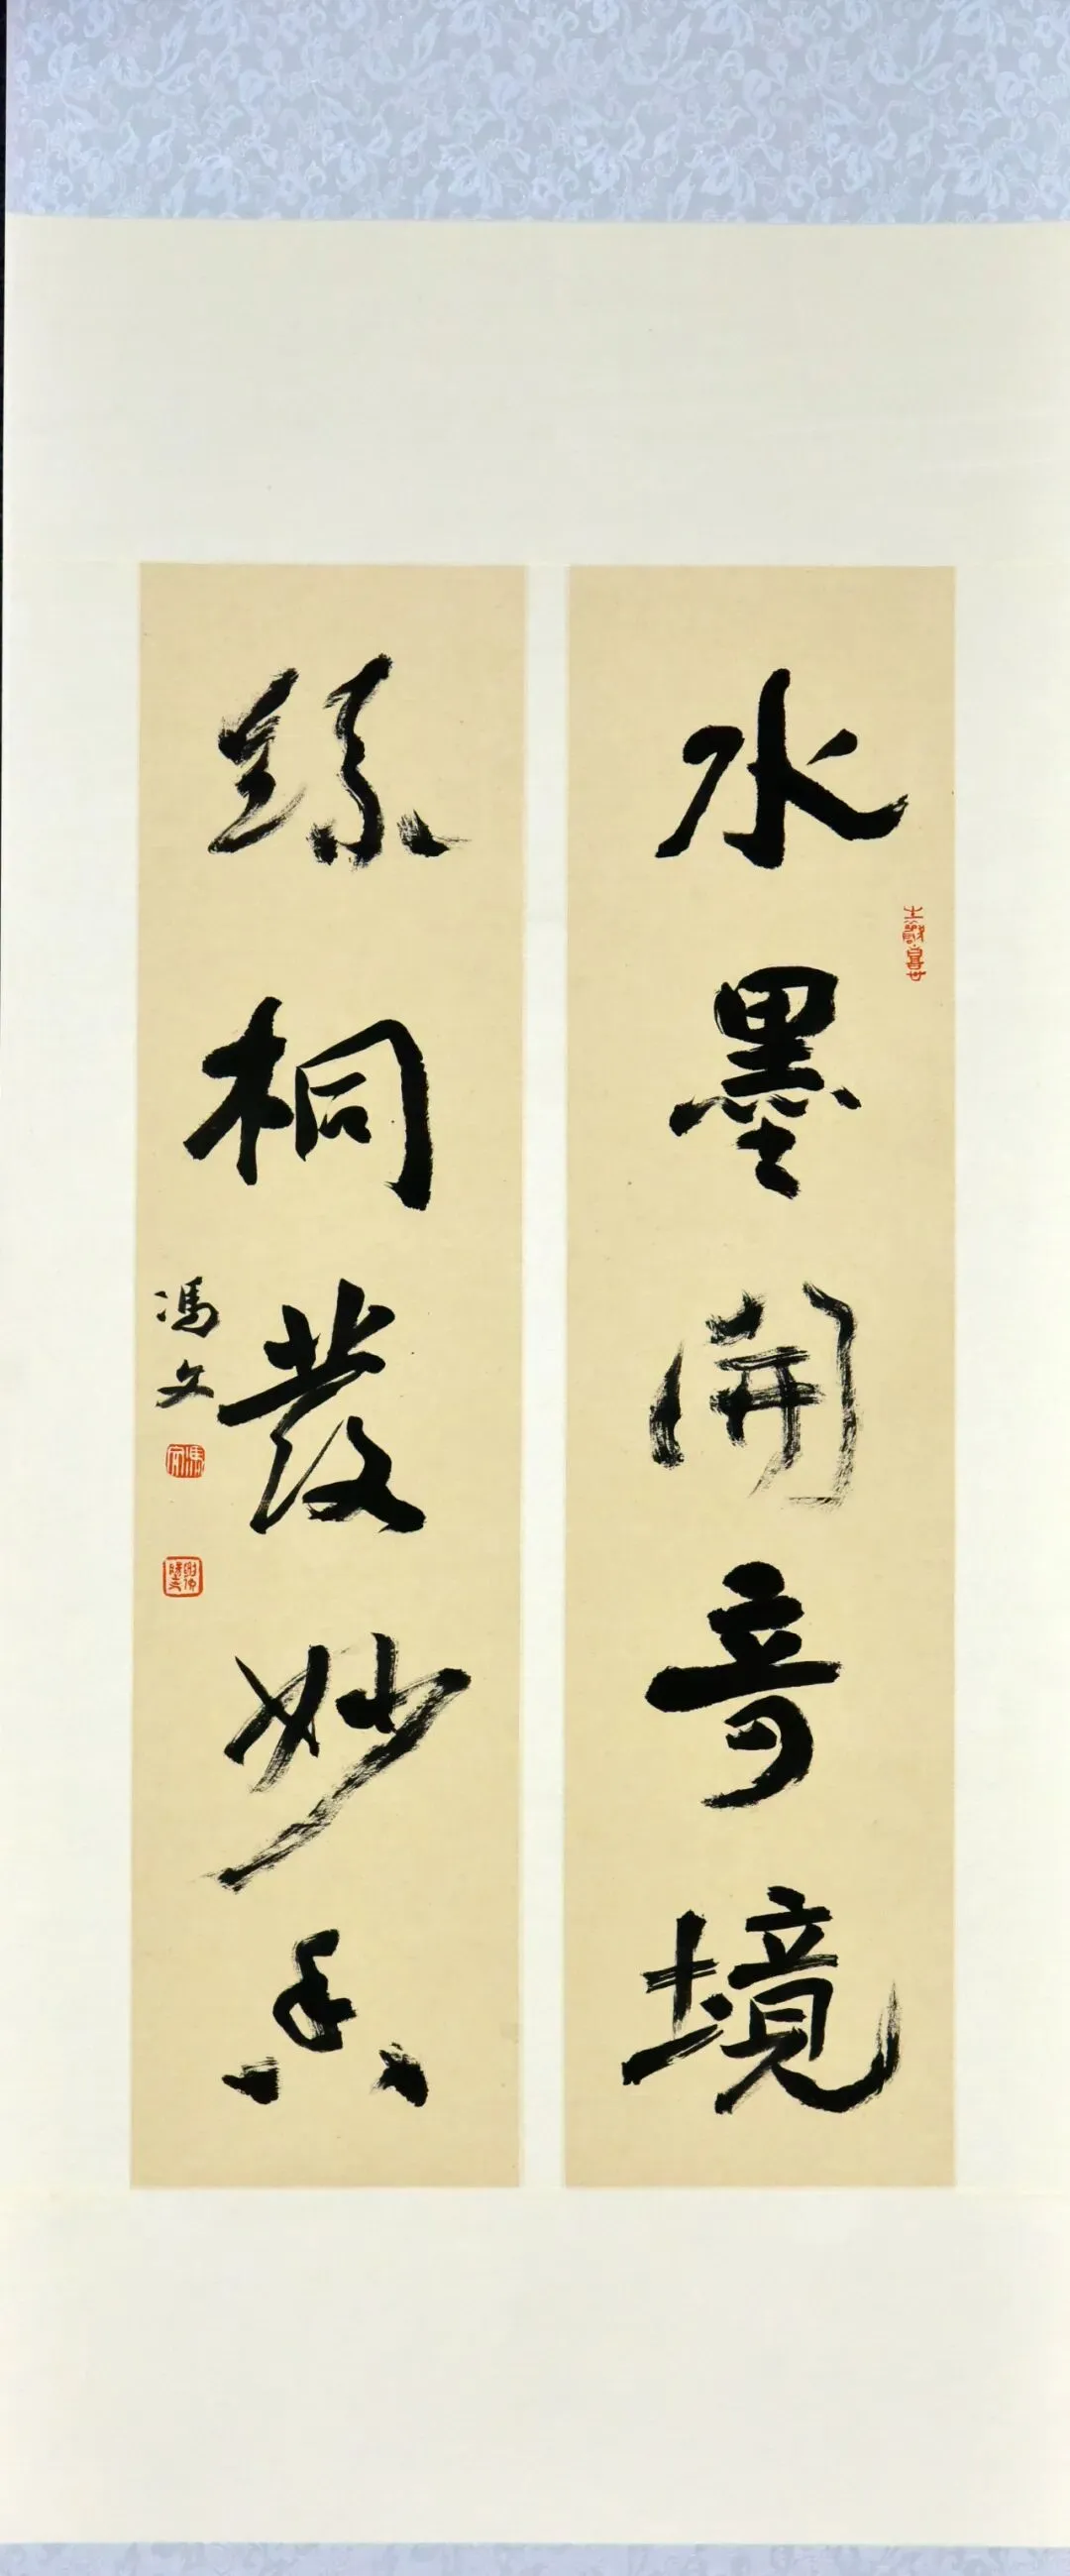 水墨開奇境
絲桐發妙
馮文